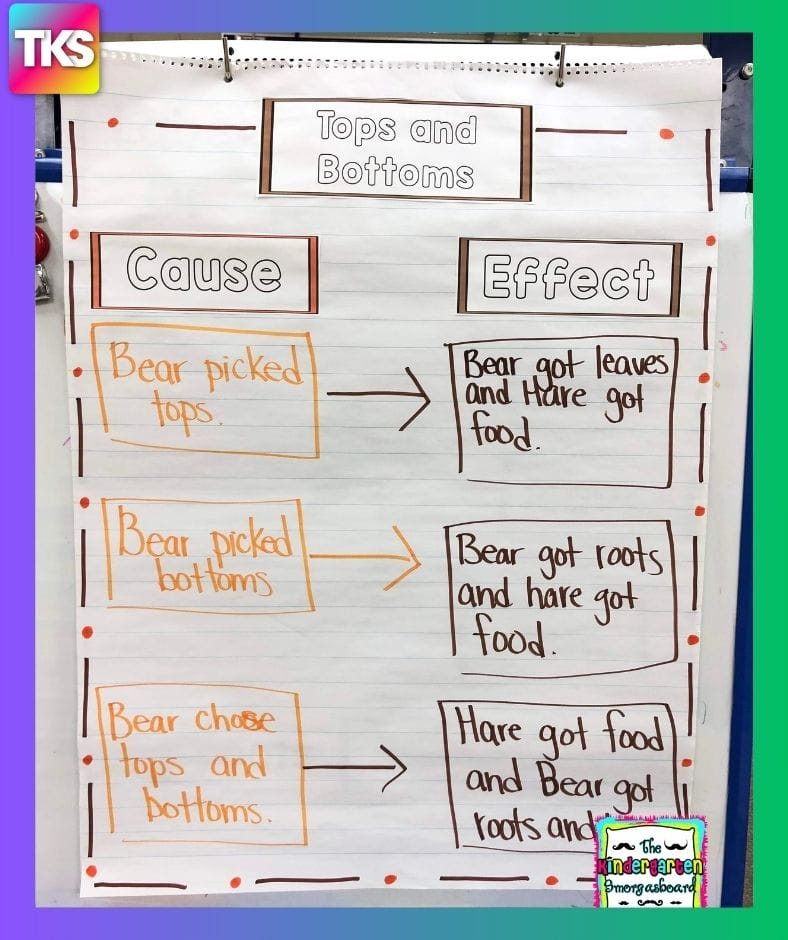 TKS
Tops and
Bottoms
Cause
Effect
Bear picked
tops.
Bear got leaves
and Hare got
food.
Bear picked
bottoms
Bear got roots
and hare got
food.
Bear chose
tops and
bottoms.
Hare got food
and Bear got
roots and
The
Kindergarten
Smorgasboard